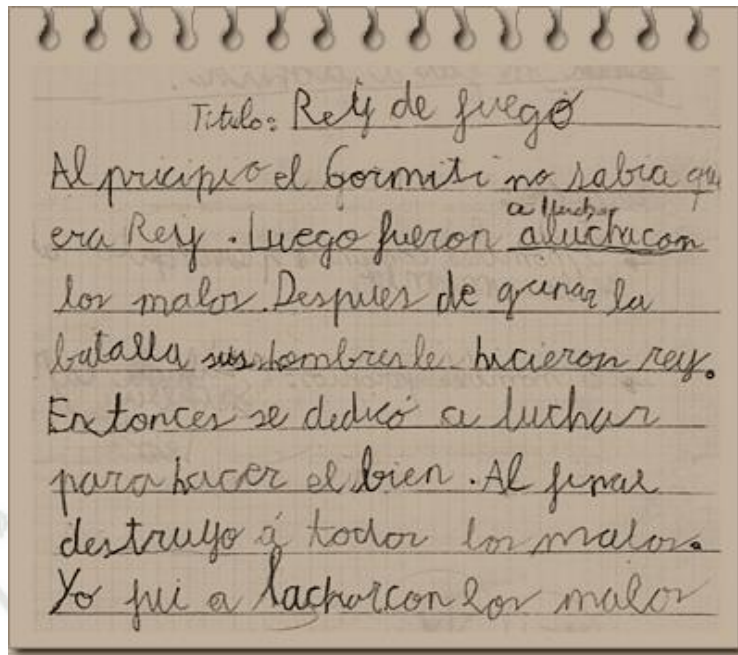 Titulo: Rey de fuego
Al pricipio el Gormiti no sabia qu
era Rey. Luego fueron aluchacon
a luchar
los malos. Despues de ganar la
batalla sus hombres le hicieron rey.
Entonces se dedicó a luchar
para hacer el bien. Al final
destruyo a todos los malos.
Yo fui a lachar con los malos